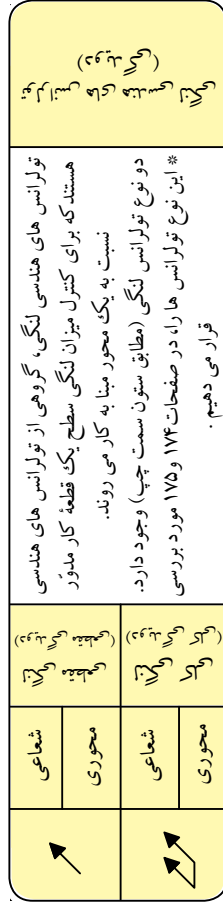 تولرانس های هندسی لنگی
(دویدگی)
تولرانس های هندسی لنگی، گروهی از تولرانس های هندسی
هستند که برای کنترل میزان لنگی سطح یک قطعهٔ کار مدوّر
نسبت به یک محور مبنا به کار می روند.
دو نوع تولرانس لنگی (مطابق ستون سمت چپ) وجود دارد.
* این نوع تولرانس ها را، در صفحات ۱۷۴ و ۱۷۵ مورد بررسی
قرار می دهیم.
لنگی مقطعی
(دویدگی مقطعی)
شعاعی
محوری
لنگی کلی
(دویدگی کلی)
شعاعی
محوری